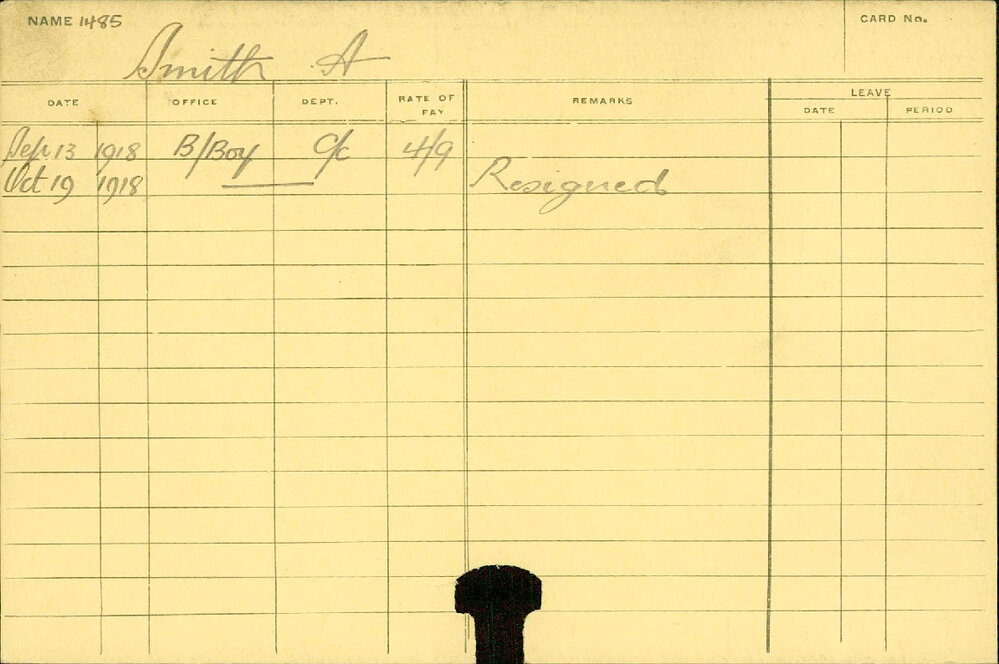 NAME 1485 CARD No.
Smith A
DATE OFFICE DEPT. RATE OF PAY REMARKS LEAVE
DATE PERIOD
Sep 13 1918 B/Boy C/c 4/9
Oct 19 1918 Resigned